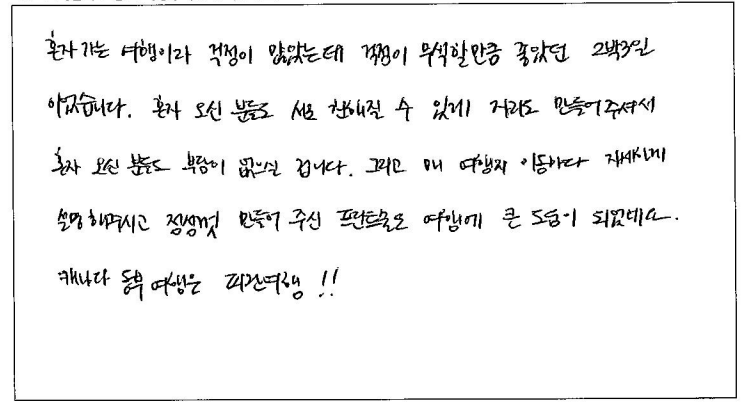 혼자가는 여행이라 걱정이 많았는데 걱정이 무색할만큼 좋았던 2박3일
이었습니다. 혼자 오신 분들도 서로 친해질 수 있게 자리도 만들어주셔서
혼자 오신 분들도 부담이 없으실 겁니다. 그리고 매 여행지 이동마다 자세하게
설명해주시고 정성껏 만들어 주신 프린트물도 여행에 큰 도움이 되었네요.
캐나다 동부 여행은 파란여행 !!